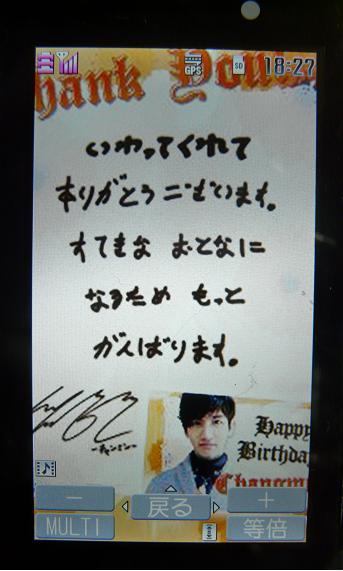 GPS SD 18:27
Thank You
いわってくれて
ありがとうございます。
すてきな おとなに
なるため もっと
がんばります。
ーチャンミンー
Happy
Birthday
Changmin
－ 戻る ＋
MULTI 等倍